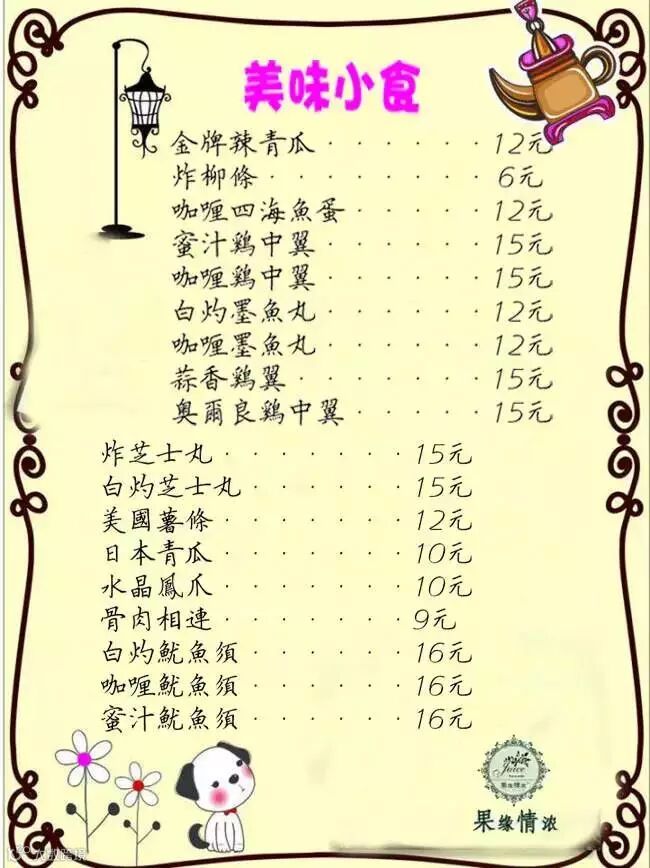 美味小食
金牌辣青瓜・・・・・・12元
炸柳條・・・・・・・・6元
咖喱四海魚蛋・・・・・12元
蜜汁鷄中翼・・・・・・15元
咖喱鷄中翼・・・・・・15元
白灼墨魚丸・・・・・・12元
咖喱墨魚丸・・・・・・12元
蒜香鷄翼・・・・・・・15元
奧爾良鷄中翼・・・・・15元
炸芝士丸・・・・・・・15元
白灼芝士丸・・・・・・15元
美國薯條・・・・・・・12元
日本青瓜・・・・・・・10元
水晶鳳爪・・・・・・・10元
骨肉相連・・・・・・・9元
白灼魷魚須・・・・・・16元
咖喱魷魚須・・・・・・16元
蜜汁魷魚須・・・・・・16元
Juice
果缘情浓